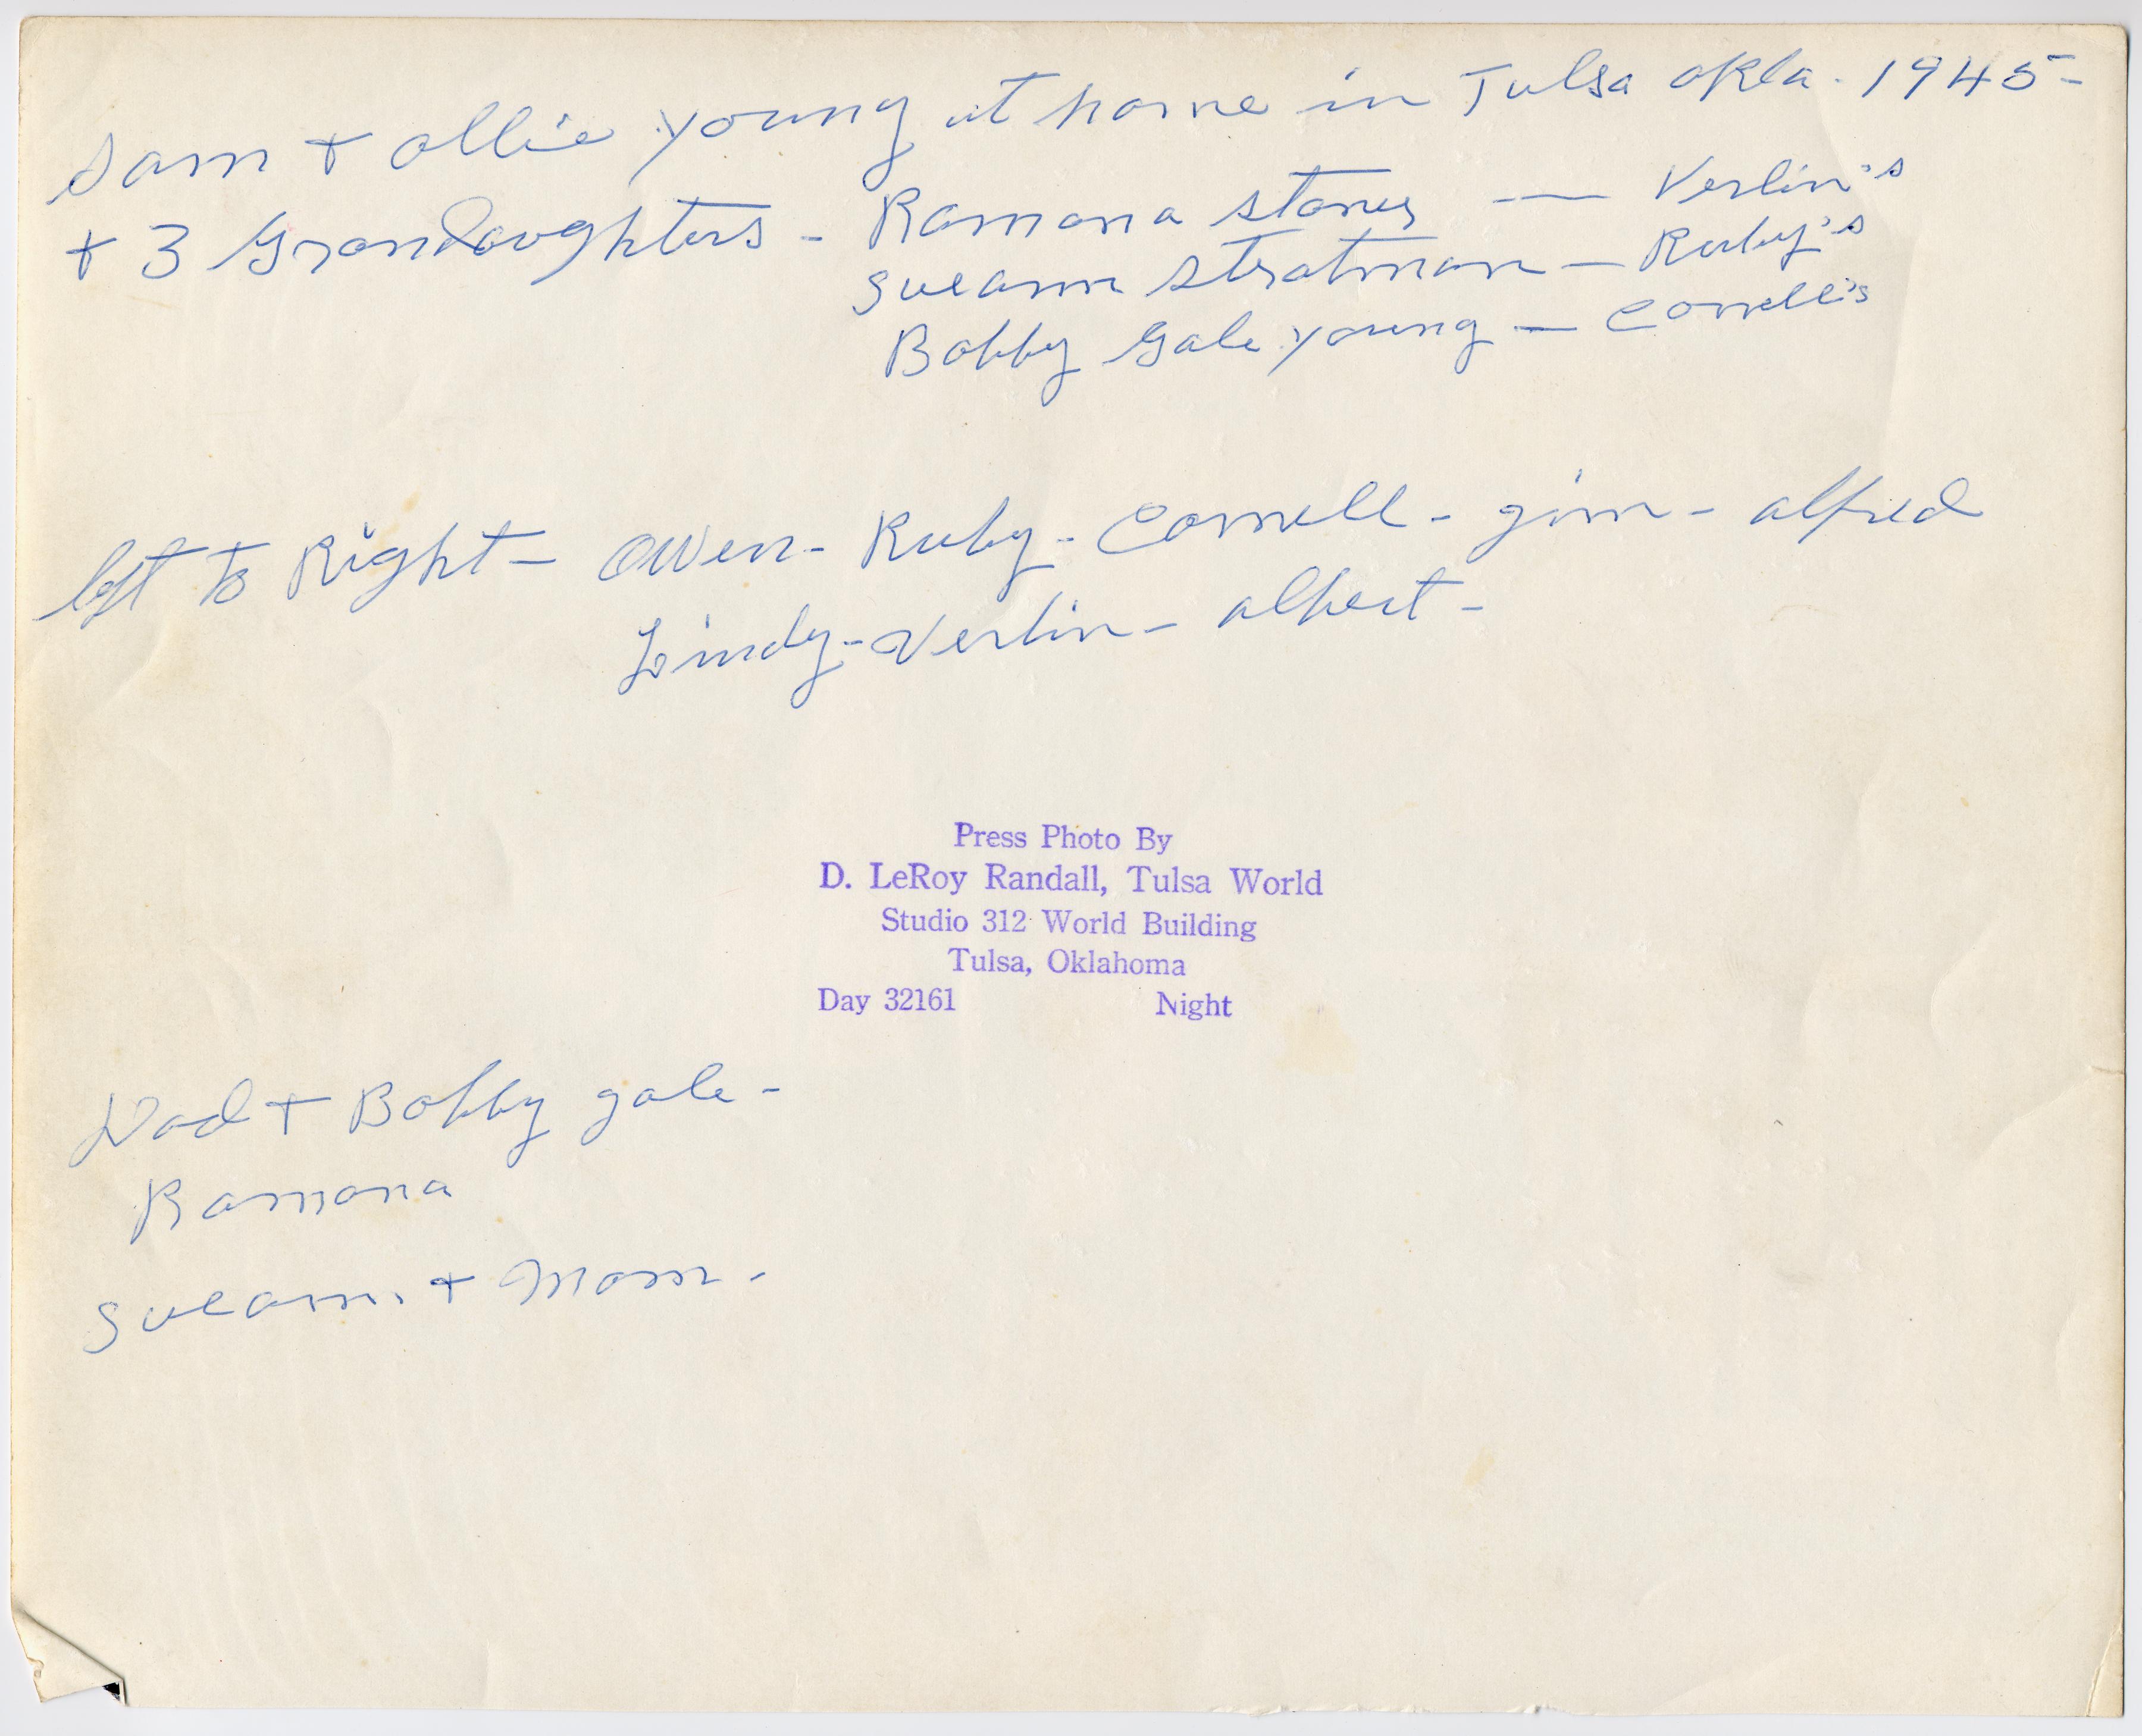 Sam + ollie young at home in Tulsa okla. 1945-
+ 3 Grandaughters - Ramona stones — Verlin's
Sueann Stratman — Ruby's
Bobby Gale young — Cornell's
left to Right - Owen - Ruby - Cornell - gim - alfred
Lindy - Verlin - albert -
Press Photo By
D. LeRoy Randall, Tulsa World
Studio 312 World Building
Tulsa, Oklahoma
Day 32161 Night
Dad + Bobby gale -
Ramona
Sueann. + Mom -